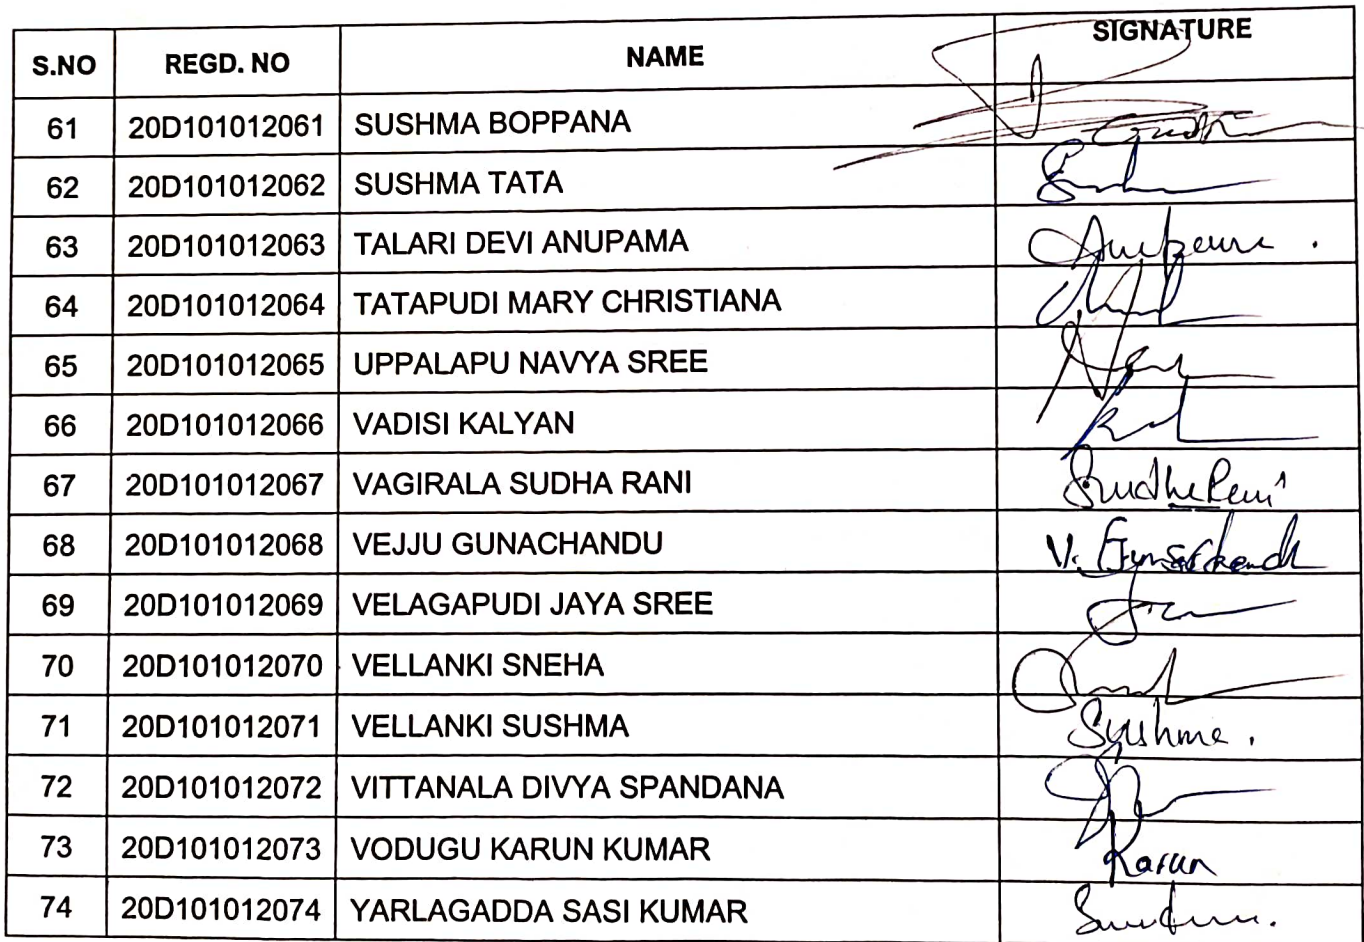 S.NO REGD. NO NAME SIGNATURE
61 20D101012061 SUSHMA BOPPANA
62 20D101012062 SUSHMA TATA
63 20D101012063 TALARI DEVI ANUPAMA
64 20D101012064 TATAPUDI MARY CHRISTIANA
65 20D101012065 UPPALAPU NAVYA SREE
66 20D101012066 VADISI KALYAN
67 20D101012067 VAGIRALA SUDHA RANI
68 20D101012068 VEJJU GUNACHANDU V.
69 20D101012069 VELAGAPUDI JAYA SREE
70 20D101012070 VELLANKI SNEHA
71 20D101012071 VELLANKI SUSHMA Sushma.
72 20D101012072 VITTANALA DIVYA SPANDANA
73 20D101012073 VODUGU KARUN KUMAR Karun
74 20D101012074 YARLAGADDA SASI KUMAR